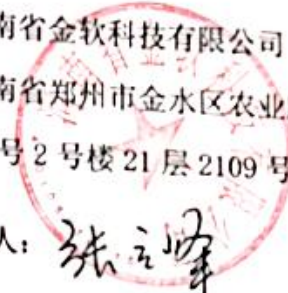 南省金软科技有限公司
南省郑州市金水区农业
号2号楼21层2109号
人:张